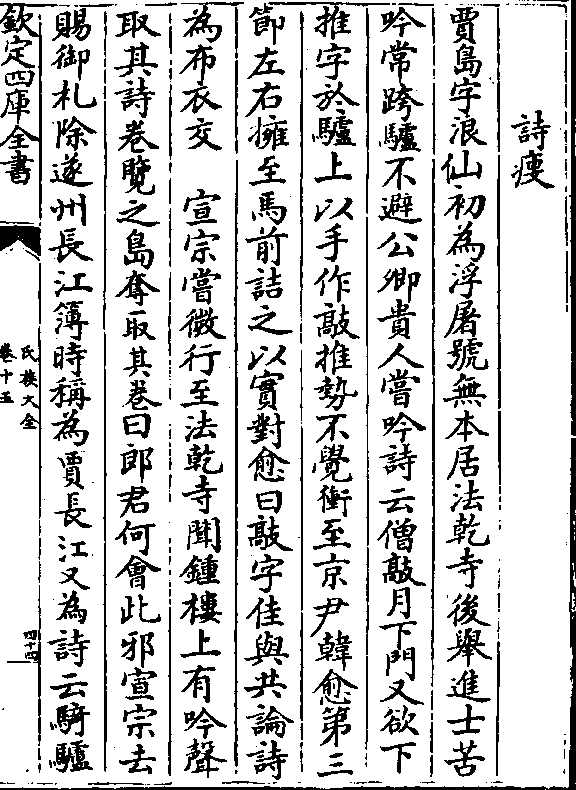 詩瘦
賈島字浪仙初為浮屠號無本居法乾寺後舉進士苦
吟常跨驢不避公卿貴人嘗吟詩云僧敲月下門又欲下
推字於驢上以手作敲推勢不覺衝至京尹韓愈第三
節左右擁至馬前詰之以實對愈曰敲字佳與共論詩
為布衣交　宣宗嘗微行至法乾寺聞鍾樓上有吟聲
取其詩卷覽之島奪取其卷曰郎君何會此邪宣宗去
賜御札除遂州長江簿時稱為賈長江又為詩云騎驢
欽定四庫全書
氏族大全
卷十五
四十四